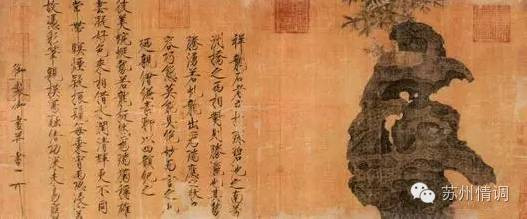 祥龍石者立於環碧池之南芳
洲橋之西相對則勝瀛也其勢
騰湧若虯龍出為瑞應之狀奇
容巧態莫能具絕妙而言之也
廼親繪縑素聊以四韻紀之
彼美蜿蜒勢若龍挺然為瑞獨稱雄
雲凝好色來相借水潤清輝更不同
常帶暝煙疑振鬣每乘宵雨恐凌空
故憑彩筆親模寫融結功深未易窮
御製御畫并書
苏州情调